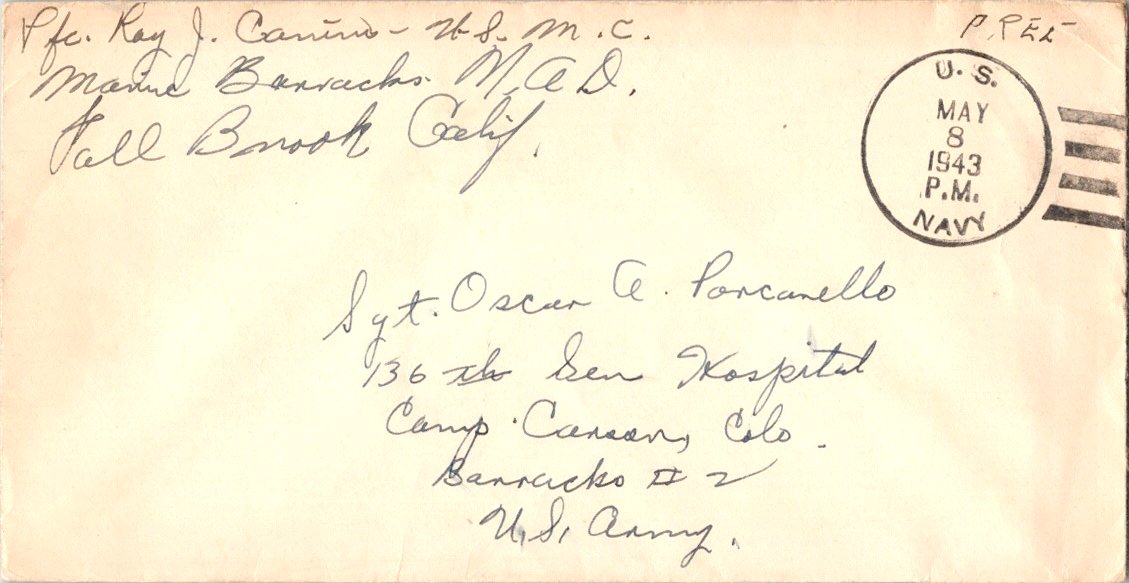 Pfc. Ray J. Canino - U.S.M.C.
Marine Barracks N.A.D.
Fall Brook Calif.
U.S.
MAY
8
1943
P.M.
NAVY
Sgt. Oscar A. Porcarello
136 th Gen Hospital
Camp Carson, Colo.
Barracks # 2
U.S. Army.